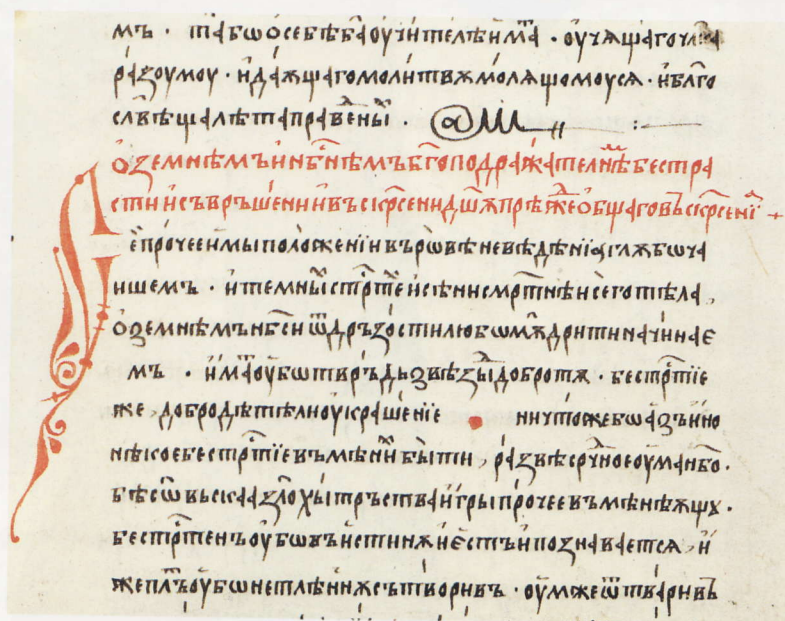 мъ · та бѡ о себѣ б҃а оучителѣ имⷶа · оучѧщаго чл҃ка
разоумоу · и даѫщаго молитвѫ молѧщомоусѧ · и бл҃го
слⷭ҇вѣща лѣта праведⷩ҇ыⷯ ·
О земнѣмъ и нбⷭ҇нѣмъ б҃гоподражателнѣⷨ бестра
стїи и съвръшени и въскрⷭ҇сени дш҃ѧ прѣжⷣе общаго въскрⷭ҇сенїⷶ +
Се прочее и мы положении въ рѡвѣ невѣдѣнїа глѫбоча
ишемъ · и темныⷯ стрⷭ҇тей и сѣни смртⷩ҇ѣи сего тѣла ,
о земнѣмъ нбⷭ҇си ѿ дръзости любомѫдрити начинає
мъ · Имⷶа оубѡ тврьдь звѣзды добротѫ · бестрⷭ҇тїе
же , добродѣтѣли оукрашенїе · ничтоже бѡ азъ ино
нѣкое бестрⷭ҇тїе въмѣнѝ быти , развѣ срⷣчное оума нб҃о ·
бѣсѡвьскаа злохытръства игры прочее въмѣнѣѫщⷹ ·
бестрⷭ҇тенъ оубѡ въ истинѫ и єстъ и познаваетсѧ , и
же плⷮь оубѡ нетлѣннѫ сътворивъ · оум же ѿ твари въ